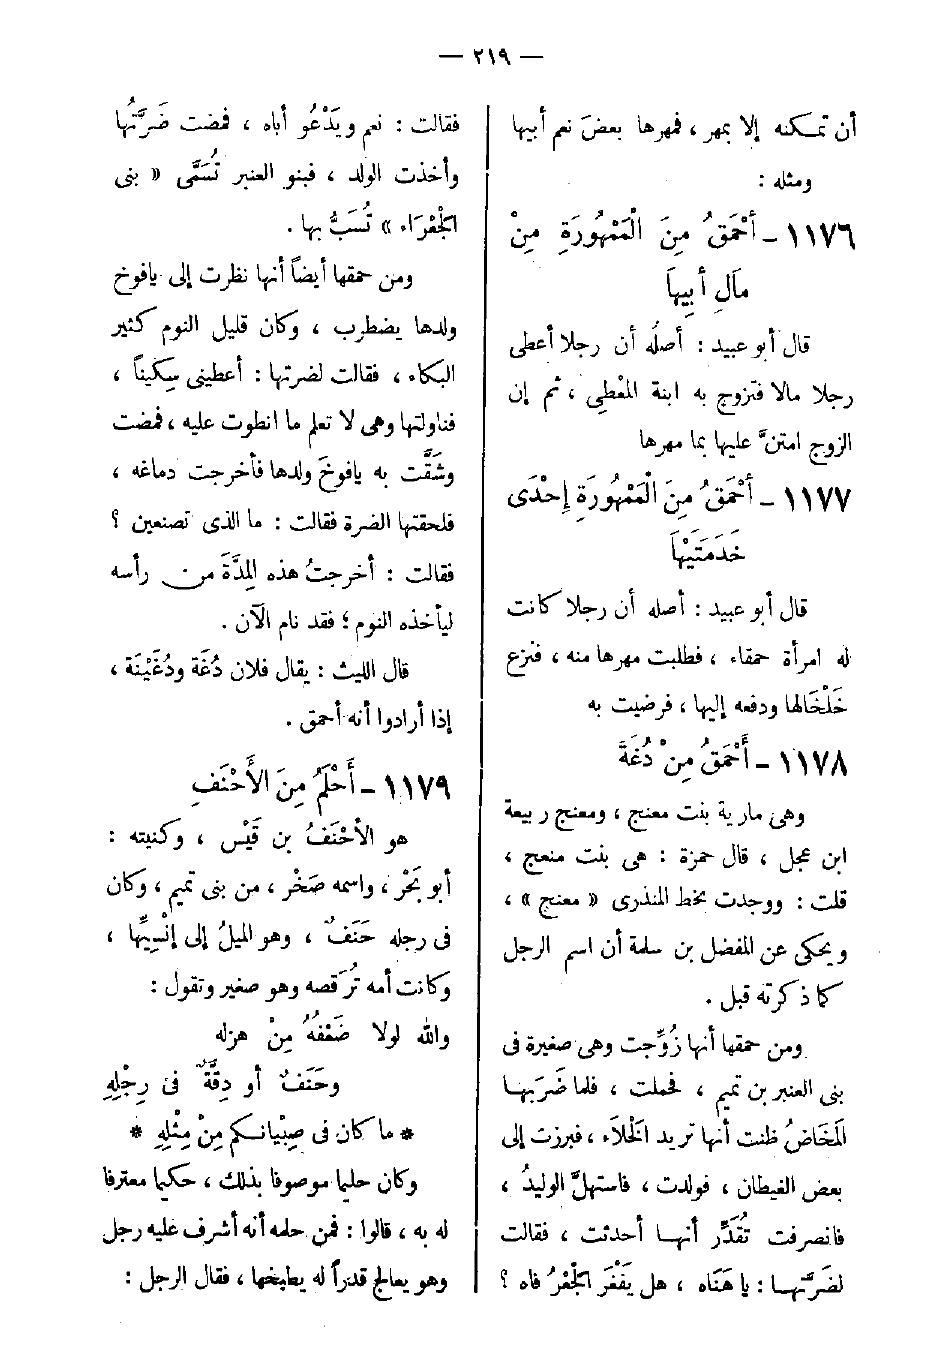 — ٢١٩ —
أن تمكنه إلا بمهر ، فمهرها بعضَ نعم أبيها
ومثله :
١١٧٦ - أَحْمَقُ مِنَ الْمَمْهُورَةِ مِنْ
مَالِ أَبِيهاَ
قال أبو عبيد : أصلُه أن رجلا أعطى
رجلا مالا فتزوج به ابنة المُعْطِى ، ثم إن
الزوج امتنَّ عليها بما مهرها
١١٧٧ - أَحْمَقُ مِنَ الْمَمْهُورَةِ إِحْدَى
خَدَمَتَيْهاَ
قال أبو عبيد : أصله أن رجلا كانت
له امرأة حمقاء ، فطلبت مهرها منه ، فنزع
خَلْخَالها ودفعه إليها ، فرضيت به
١١٧٨ - أَحْمَقُ مِنْ دُغَةَ
وهى مارية بنت معنج ، ومعنج ربيعة
ابن عجل ، قال حمزة : هى بنت منعج ،
قلت : ووجدت بخط المنذرى « معنج » ،
ويحكى عن المفضل بن سلمة أن اسم الرجل
كما ذكرته قبل .
ومن حمقها أنها زُوِّجت وهى صغيرة فى
بنى العنبر بن تميم ، فحملت ، فلما ضَرَبها
المَخَاضُ ظنت أنها تريد الخلاَء ، فبرزت إلى
بعض الغيطان ، فولدت ، فاستهلَّ الوليدُ ،
فانصرفت تُقَدِّر أنها أحدثت ، فقالت
لضَرَّتها : يا هَنَاه ، هل يَفْغَر الجَعْرُ فاه ؟
فقالت : نعم ويَدْعُو أباه ، فمضت ضَرَّتُها
وأخذت الولد ، فبنو العنبر تُسَمَّى « بنى
الجَعْرَاء » تُسَبُّ بها .
ومن حمقها أيضاً أنها نظرت إلى يافوخ
ولدها يضطرب ، وكان قليل النوم كثير
البكاء ، فقالت لضرتها : أعطينى سِكِّيناً ،
فناولتها وهى لا تعلم ما انطوت عليه ، فمضت
وشَقَّت به يافوخَ ولدها فأخرجت دماغه ،
فلحقتها الضرة فقالت : ما الذى تصنعين ؟
فقالت : أخرجتُ هذه المِدَّةَ من رأسه
ليأخذه النوم ؛ فقد نام الآن .
قال الليث : يقال فلان دُغَة ودُغَيْنَة ،
إذا أرادوا أنه أحمق .
١١٧٩ - أَحْلَمُ مِنَ الأَحْنَفِ
هو الأحْنَفُ بن قَيْس ، وكنيته :
أبو بَحْر ، واسمه صَخْر ، من بنى تميم ، وكان
فى رجله حَنَفٌ ، وهو الميلُ إلى إنْسِيِّها ،
وكانت أمه تُرَقصه وهو صغير وتقول :
والله لولا ضَعْفُهُ مِنْ هزله
وحَنَفٌ أو دِقَّةٌ فى رِجْلِهِ
* ما كان فى صِبْيانكم مِنْ مِثْلِهِ *
وكان حليما موصوفا بذلك ، حكيما معترفا
له به ، قالوا : فمن حلمه أنه أشرف عليه رجل
وهو يعالج قدرًا له يطبخها ، فقال الرجل :